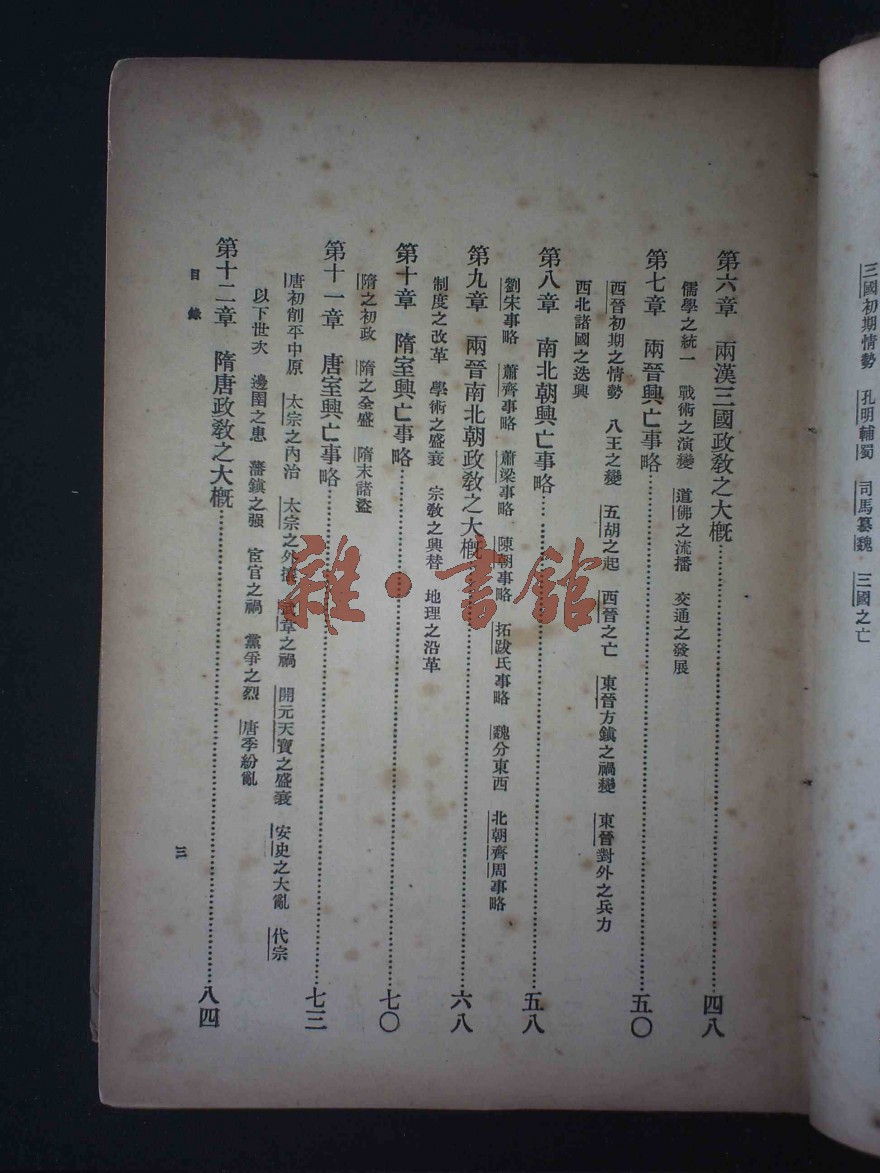 三國初期情勢　孔明輔蜀　司馬纂魏　三國之亡
第六章　兩漢三國政敎之大槪 四八
儒學之統一　戰術之演變　道佛之流播　交通之發展
第七章　兩晉興亡事略 五〇
西晉初期之情勢　八王之變　五胡之起　西晉之亡　東晉方鎭之禍變　東晉對外之兵力
西北諸國之迭興
第八章　南北朝興亡事略 五八
劉宋事略　蕭齊事略　蕭梁事略　陳朝事略　拓跋氏事略　魏分東西　北朝齊周事略
第九章　兩晉南北朝政敎之大槪 六八
制度之改革　學術之盛衰　宗敎之興替　地理之沿革
第十章　隋室興亡事略 七〇
隋之初政　隋之全盛　隋末諸盜
第十一章　唐室興亡事略 七三
唐初削平中原　太宗之內治　太宗之外　武韋之禍　開元天寶之盛衰　安史之大亂　代宗
以下世次　邊圉之患　藩鎭之强　宦官之禍　黨爭之烈　唐季紛亂
第十二章　隋唐政敎之大槪 八四
目錄
三
雜·書館